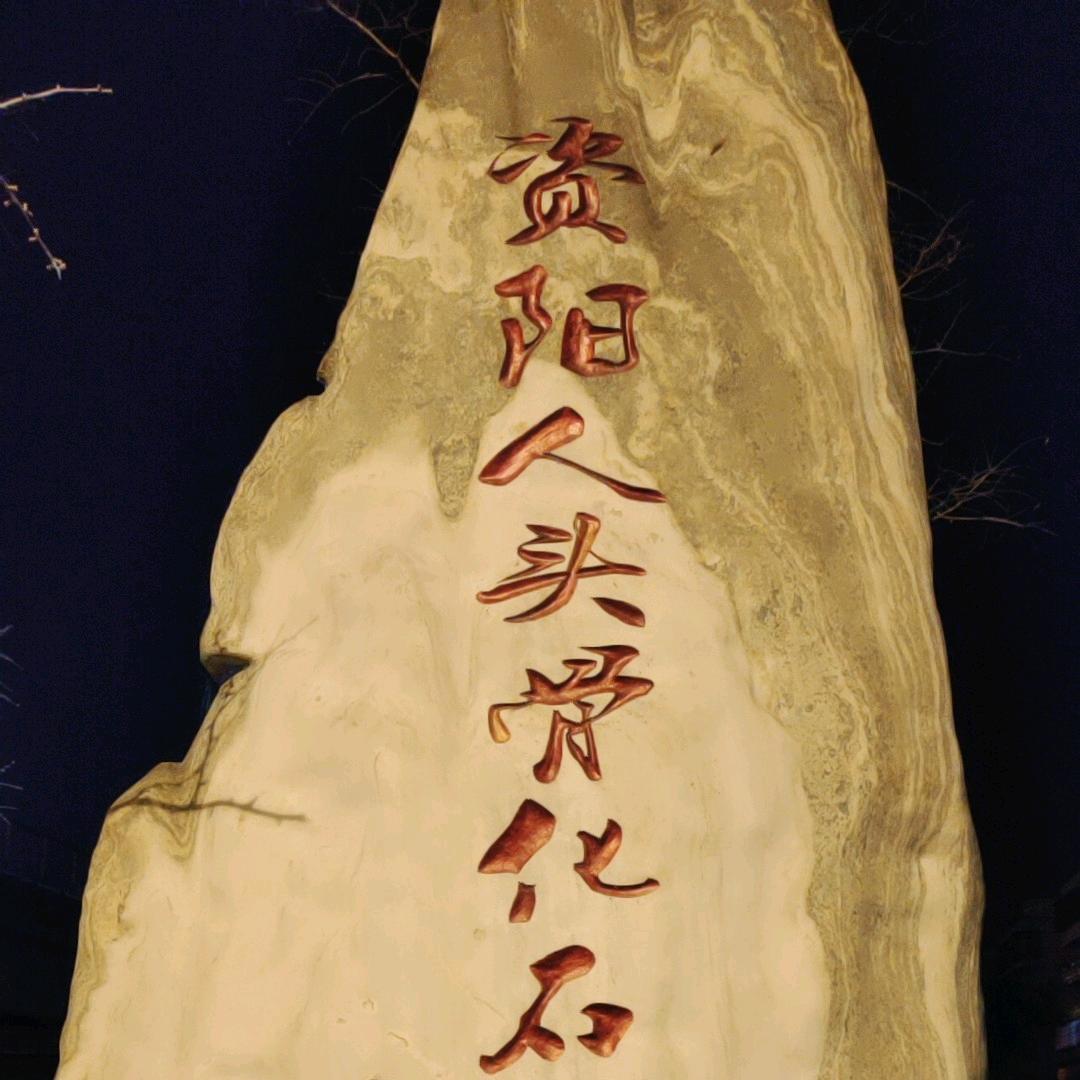 资阳人头骨化石